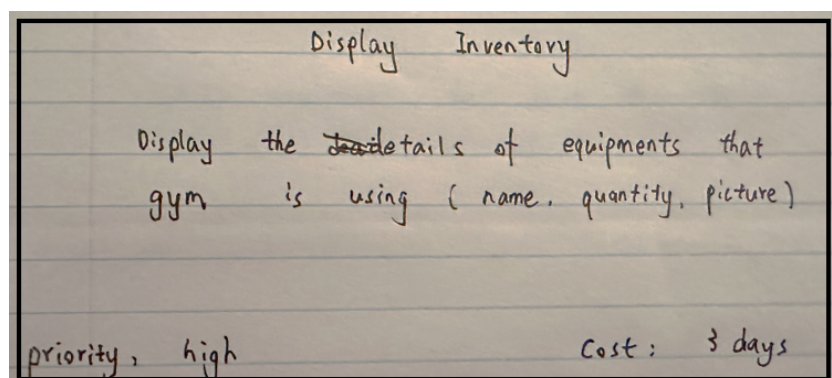 Display Inventory
Display the details of equipments that
gym is using ( name, quantity, picture)
priority, high Cost: 3 days